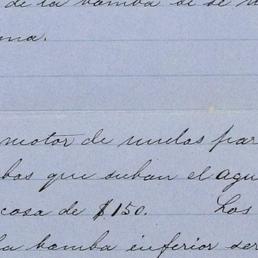 de la bomba si se
ma.
motor de mulas par
bas que suban el agu
cosa de $150. Los
la bomba inferior ser